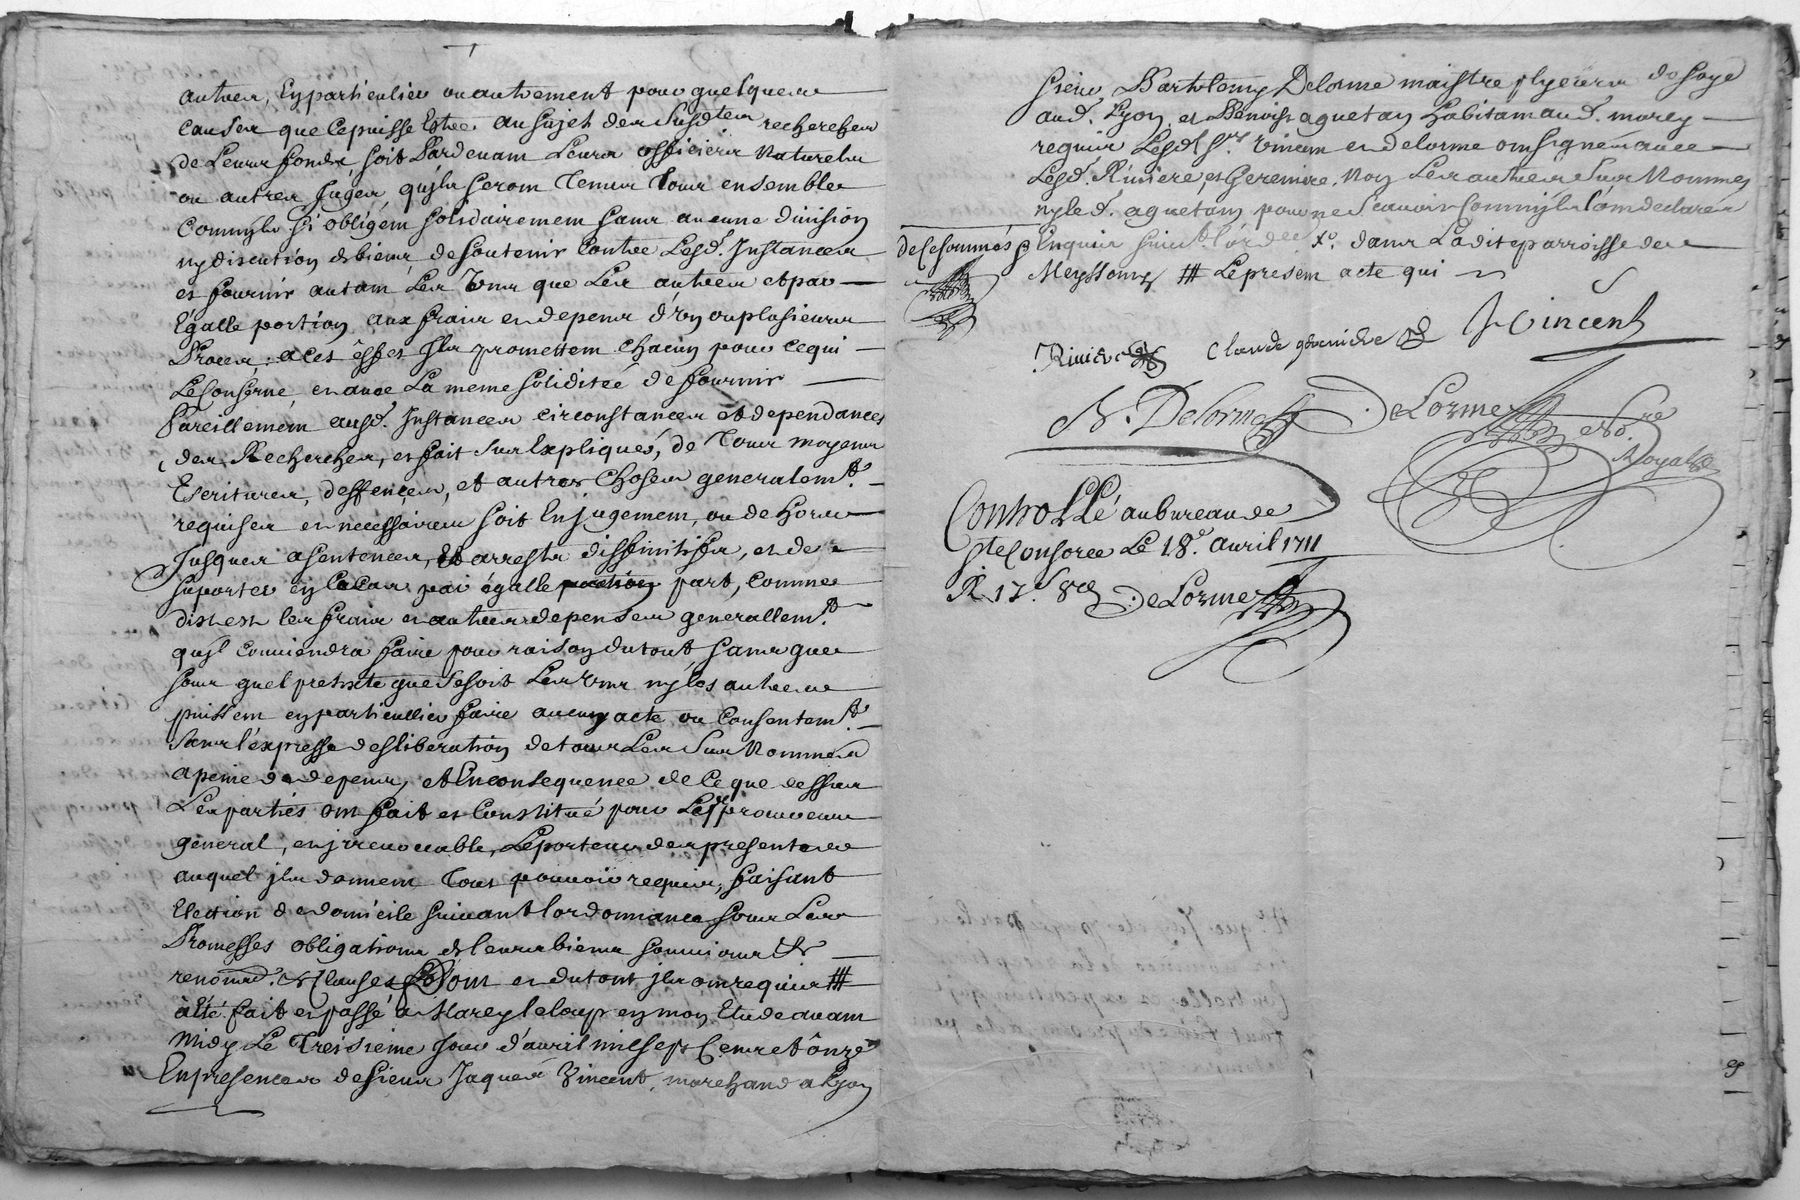 autres, En particulier ou autrement pour quelques
causes que Ce puisse Estre. au sujet des susd.tes recherches
de Leurs fonds soit Pardevant Leurs officiers Naturels
ou autres Juges, qu'jls seront Tenus Tous ensembles
Comm'jls s'i obligent solidairement sans aucune division
ny discution de biens, de soutenir Contre Lesd. Instances
et fournir autant Les Uns que Les autres et par
Egalle portion aux frais et depens d'un ou plusieurs
Proces. a Ces effes jls promettent chacun pour Ce qui
Le Conserne, et avec La meme soliditée de fournir
Pareillement ausd. Instances circonstances et dependances
des Recherches, et fait sus Expliqués, de Tous moyens
Escritures, deffences, et autres Choses generalem.t
requises et necessaires soit En jugement, ou dehors
Jusques a sentences, Et arrests diffinitifs, et de
suporter en Ce Cas par égalle portion part, Comme
dist est les frais et autres depenses generallem.t
qu'jl Conviendra faire pour raison du tout sans que
sous quel pretexte que se soit Les Uns ny les autres
puissent en particullier faire aucun acte ou Consentem.t
sans l'expresse desliberation de tous Les sus Nommés
a peine de depens, et En consequence de Ce que dessus
Les parties ont fait et Constitué pour Leur procureur
general, et jrrevocable, Le porteur des presentes
auquel jls donnent Tous pouvoir requis, faisant
Election de domicile suivant l'ordonnance sous Les
Promesses obligations de leurs biens soumissions &
renonad. & Clauses dont et du tout jls ont requis #
à Eté fait et passé a Marcy le loup en mon Etude avant
Midy Le Treisieme Jour d'avril mil sept Cents et ônze
En presences de sieurs Jaques Vincent, marchand a Lyon
sieur Bartelemy Delorme maistre plyeurs de soye
aud. Lyon, et Benoist aguetan habitant aud. marcy
requis Lesd. s.rs Vincent et delorme ont signé avec
Lesd. Riviere, et Geremière, Non Les autres sus Nommes
ny led. aguetant pour ne scavoir Comm'jls l'ont declarés
Enquis suiv.t l'ord.ce X.o dans Ladite parroisse de
Meyssonny # Le present acte qui
de Ce sommés
Rivière
Claude geremière
J Vincent
N. Delorme
DeLorme
no.re
Royal
Controllé au bureau de
S.te Consorce Le 18.e avril 1711
R. 17.s 8.d
DeLorme